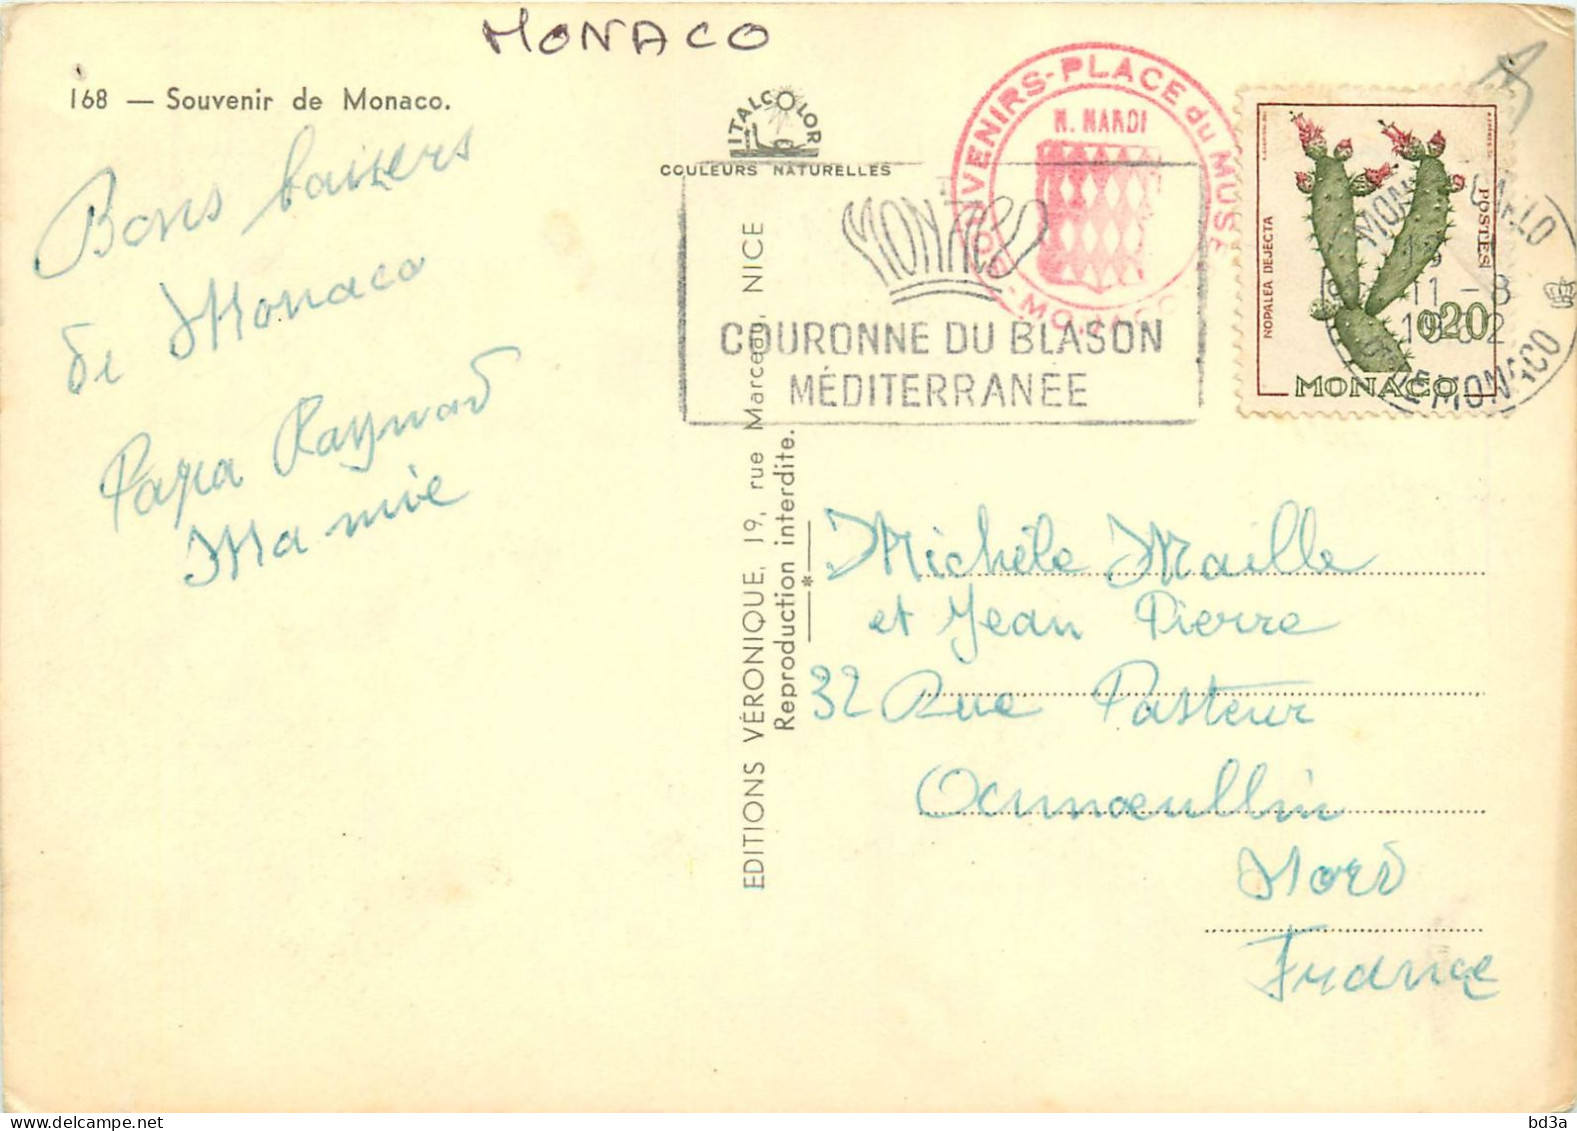 MONACO
168 — Souvenir de Monaco.
Bons baisers
de Monaco
Papa Raymond
Mamie
ITALCOLOR
COULEURS NATURELLES
MONACO
COURONNE DU BLASON
MÉDITERRANÉE
SOUVENIRS-PLACE du MUSÉE
N. NARDI
MONACO
EDITIONS VÉRONIQUE, 19, rue Marceau, NICE
Reproduction interdite.
NOPALEA DEJECTA
POSTES
0,20
MONACO
MONTE CARLO
19
11 - 8
1962
Pte DE MONACO
Michèle Maille
et Jean Pierre
32 Rue Pasteur
Ocmoeullin
Nord
France
bd3a